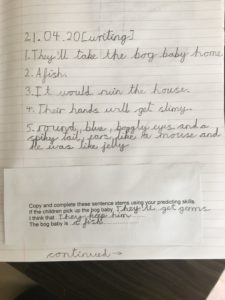 21.04.20[writing]
1. They'll take the bog baby home
2. A fish.
3. It would ruin the house.
4. Their hands will get slimy.
5. round, blue, boggly eyes and a
spiky tail, ears like a mouse and
He was like jelly
Copy and complete these sentence stems using your predicting skills.
If the children pick up the bog baby They'll get germs
I think that They keep him
The bog baby is a fish
continued→